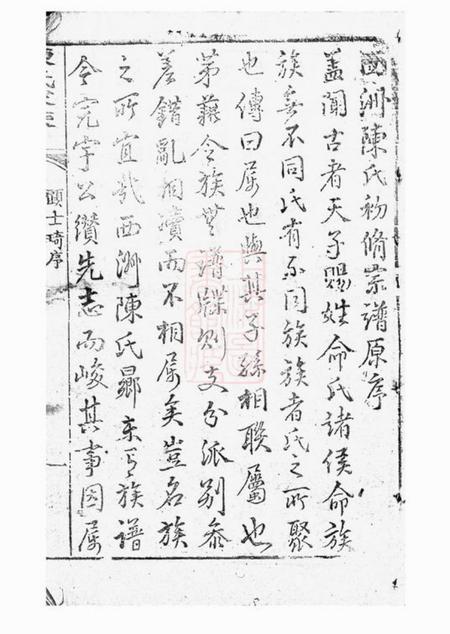 西洲陳氏初脩宗譜原序
蓋聞古者天子賜姓命氏諸侯命族
族無不同氏有不同族族者氏之所聚
也傳曰屬也與其子孫相聯屬也
苐藉令族無譜牒則支分派別叅
差錯亂相瀆而不相屬矣豈名族
之所宜哉西洲陳氏鄉未有族譜
令完宇公纘先志而峻其事因屬
顧士琦序